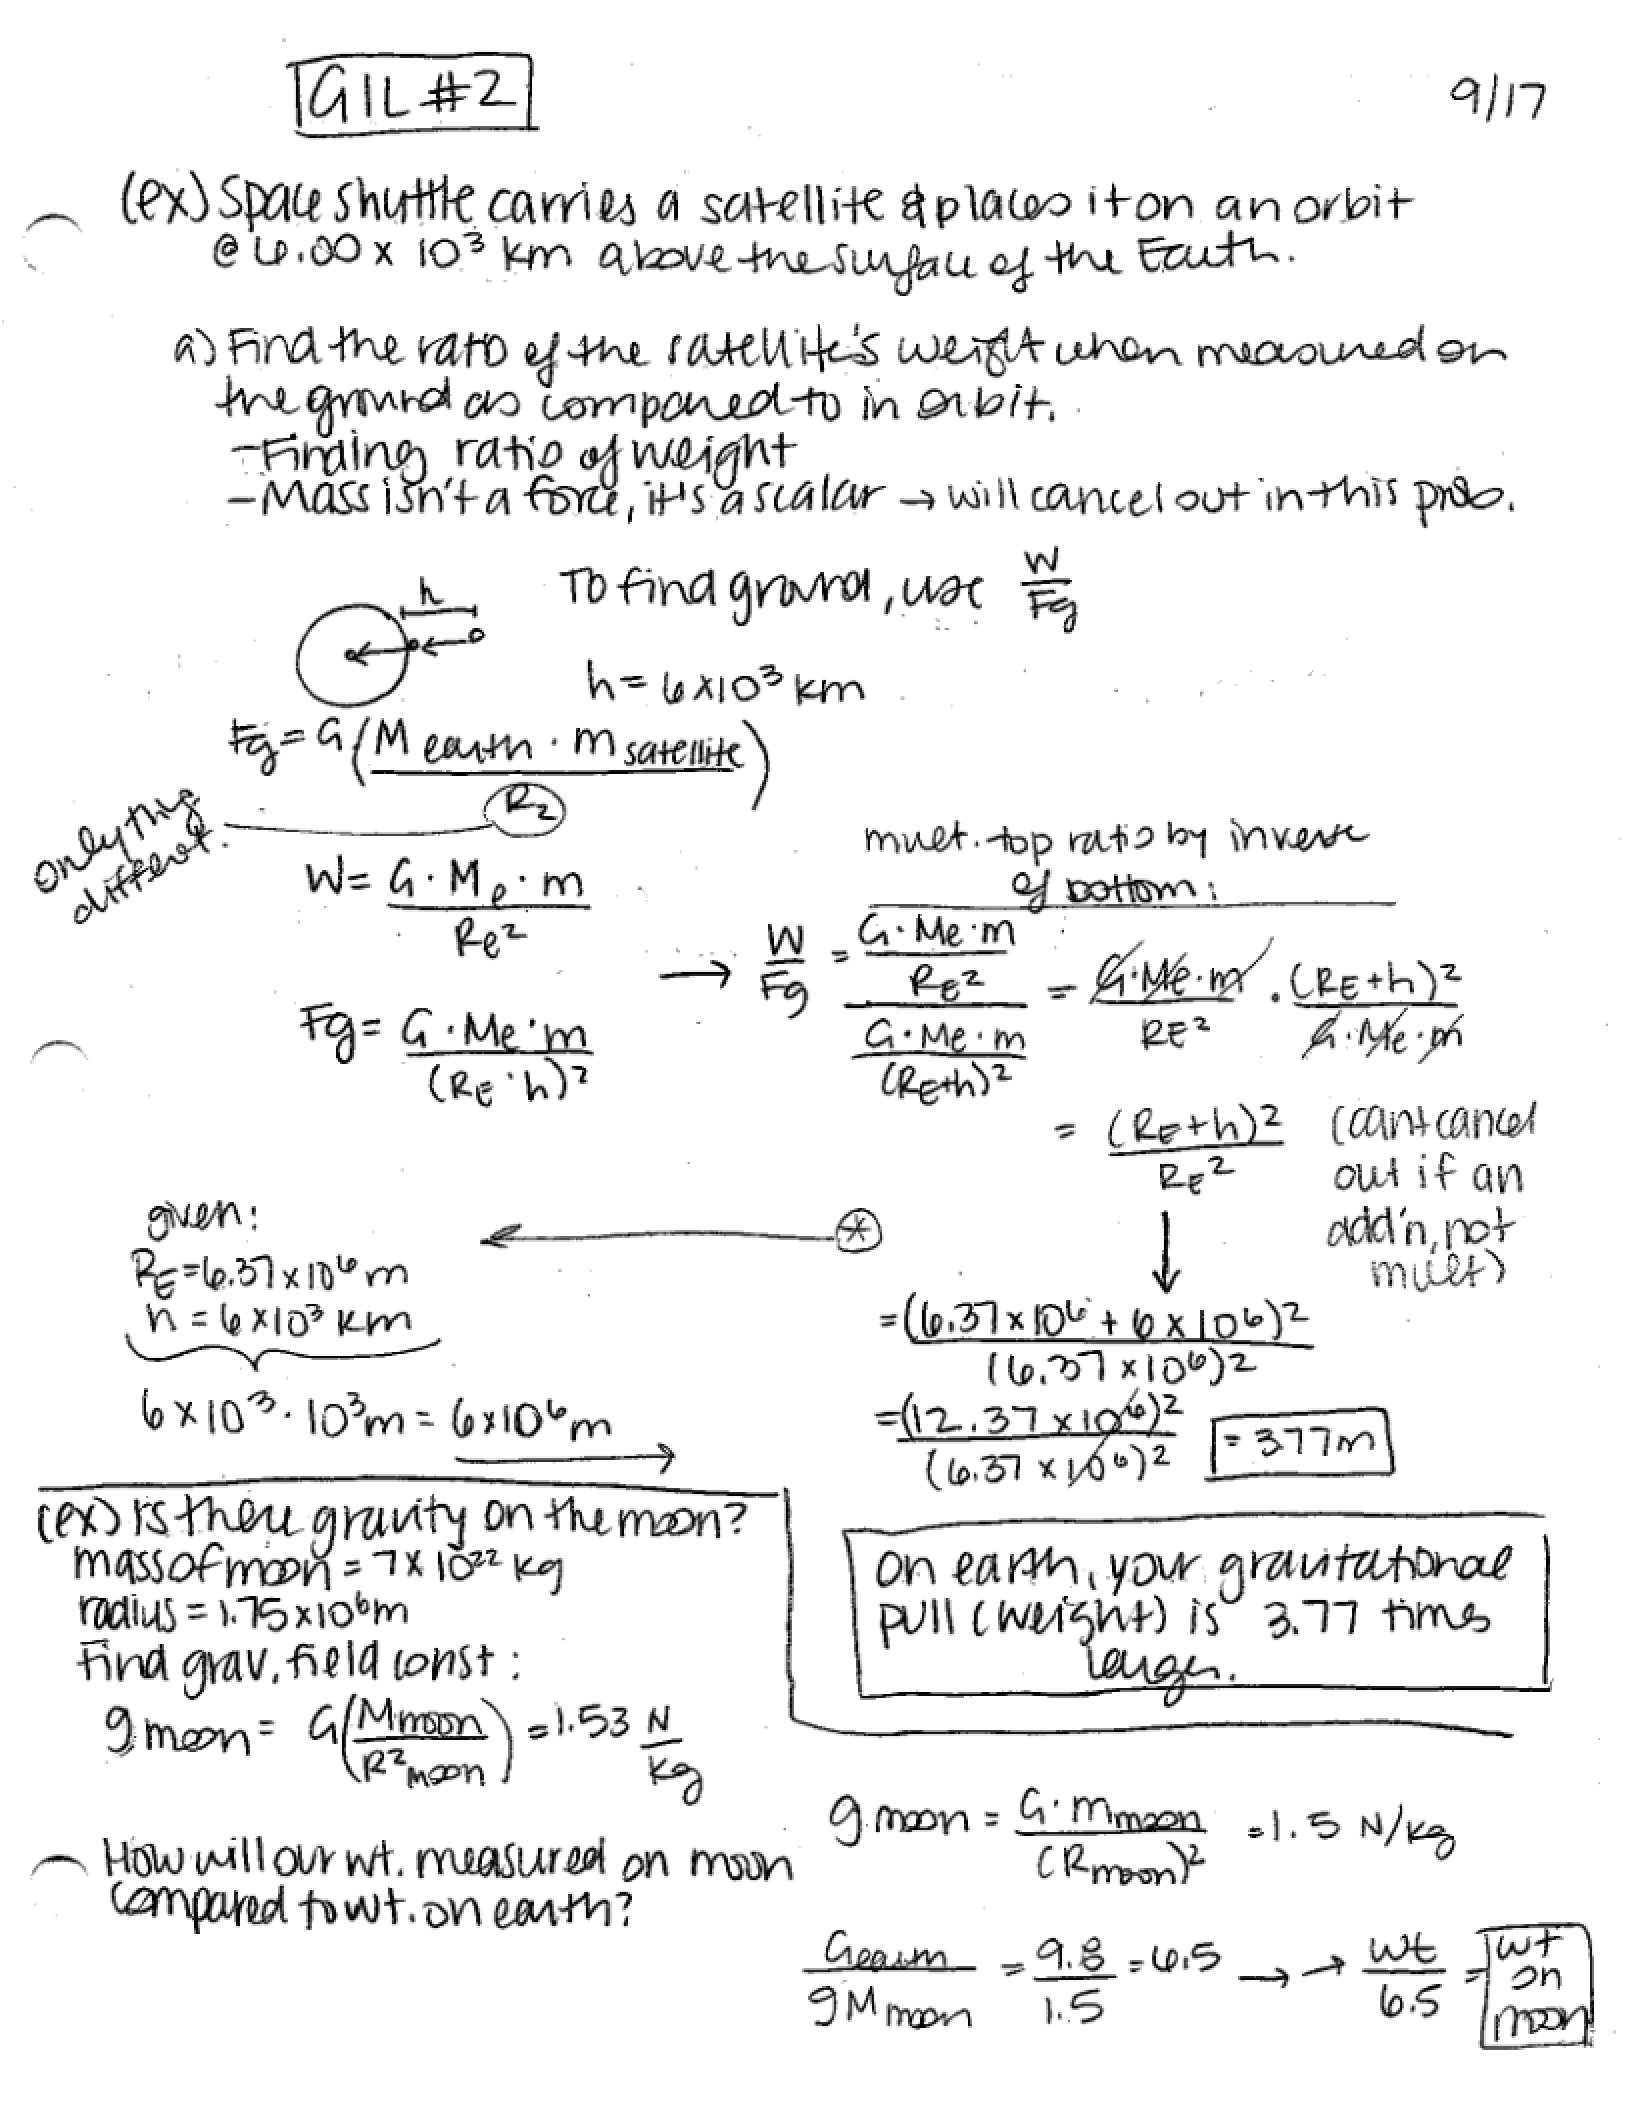 GIL #2
9/17
(ex) Space shuttle carries a satellite & places it on an orbit
@ 6.00 x 10³ km above the surface of the Earth.
a) Find the ratio of the satellite's weight when measured on
the ground as compared to in orbit.
- Finding ratio of weight
- Mass isn't a force, it's a scalar → will cancel out in this prob.
To find ground, use W/Fg
h
h = 6x10³ km
Fg = G (M earth · m satellite / R2)
only thing
different.
W = G · Me · m / Re²
Fg = G · Me · m / (RE · h)²
mult. top ratio by inverse
of bottom:
→ W/Fg = (G · Me · m / RE²) / (G · Me · m / (RE+h)²) = G·Me·m / RE² · (RE+h)² / G·Me·m
= (RE+h)² / RE²
(can't cancel
out if an
add'n, not
mult)
given:
RE = 6.37x10⁶ m
h = 6x10³ km
6x10³ · 10³m = 6x10⁶m
= (6.37x10⁶ + 6x10⁶)² / (6.37x10⁶)²
= (12.37x10⁶)² / (6.37x10⁶)² = 3.77m
On earth, your gravitational
pull (weight) is 3.77 times
larger.
(ex) Is there gravity on the moon?
mass of moon = 7x10²² kg
radius = 1.75x10⁶m
Find grav. field const:
g moon = G (M moon / R² moon) = 1.53 N/kg
How will our wt. measured on moon
compared to wt. on earth?
g moon = G · m moon / (R moon)² = 1.5 N/kg
G earth / g M moon = 9.8 / 1.5 = 6.5 → → wt / 6.5 = wt
on
moon